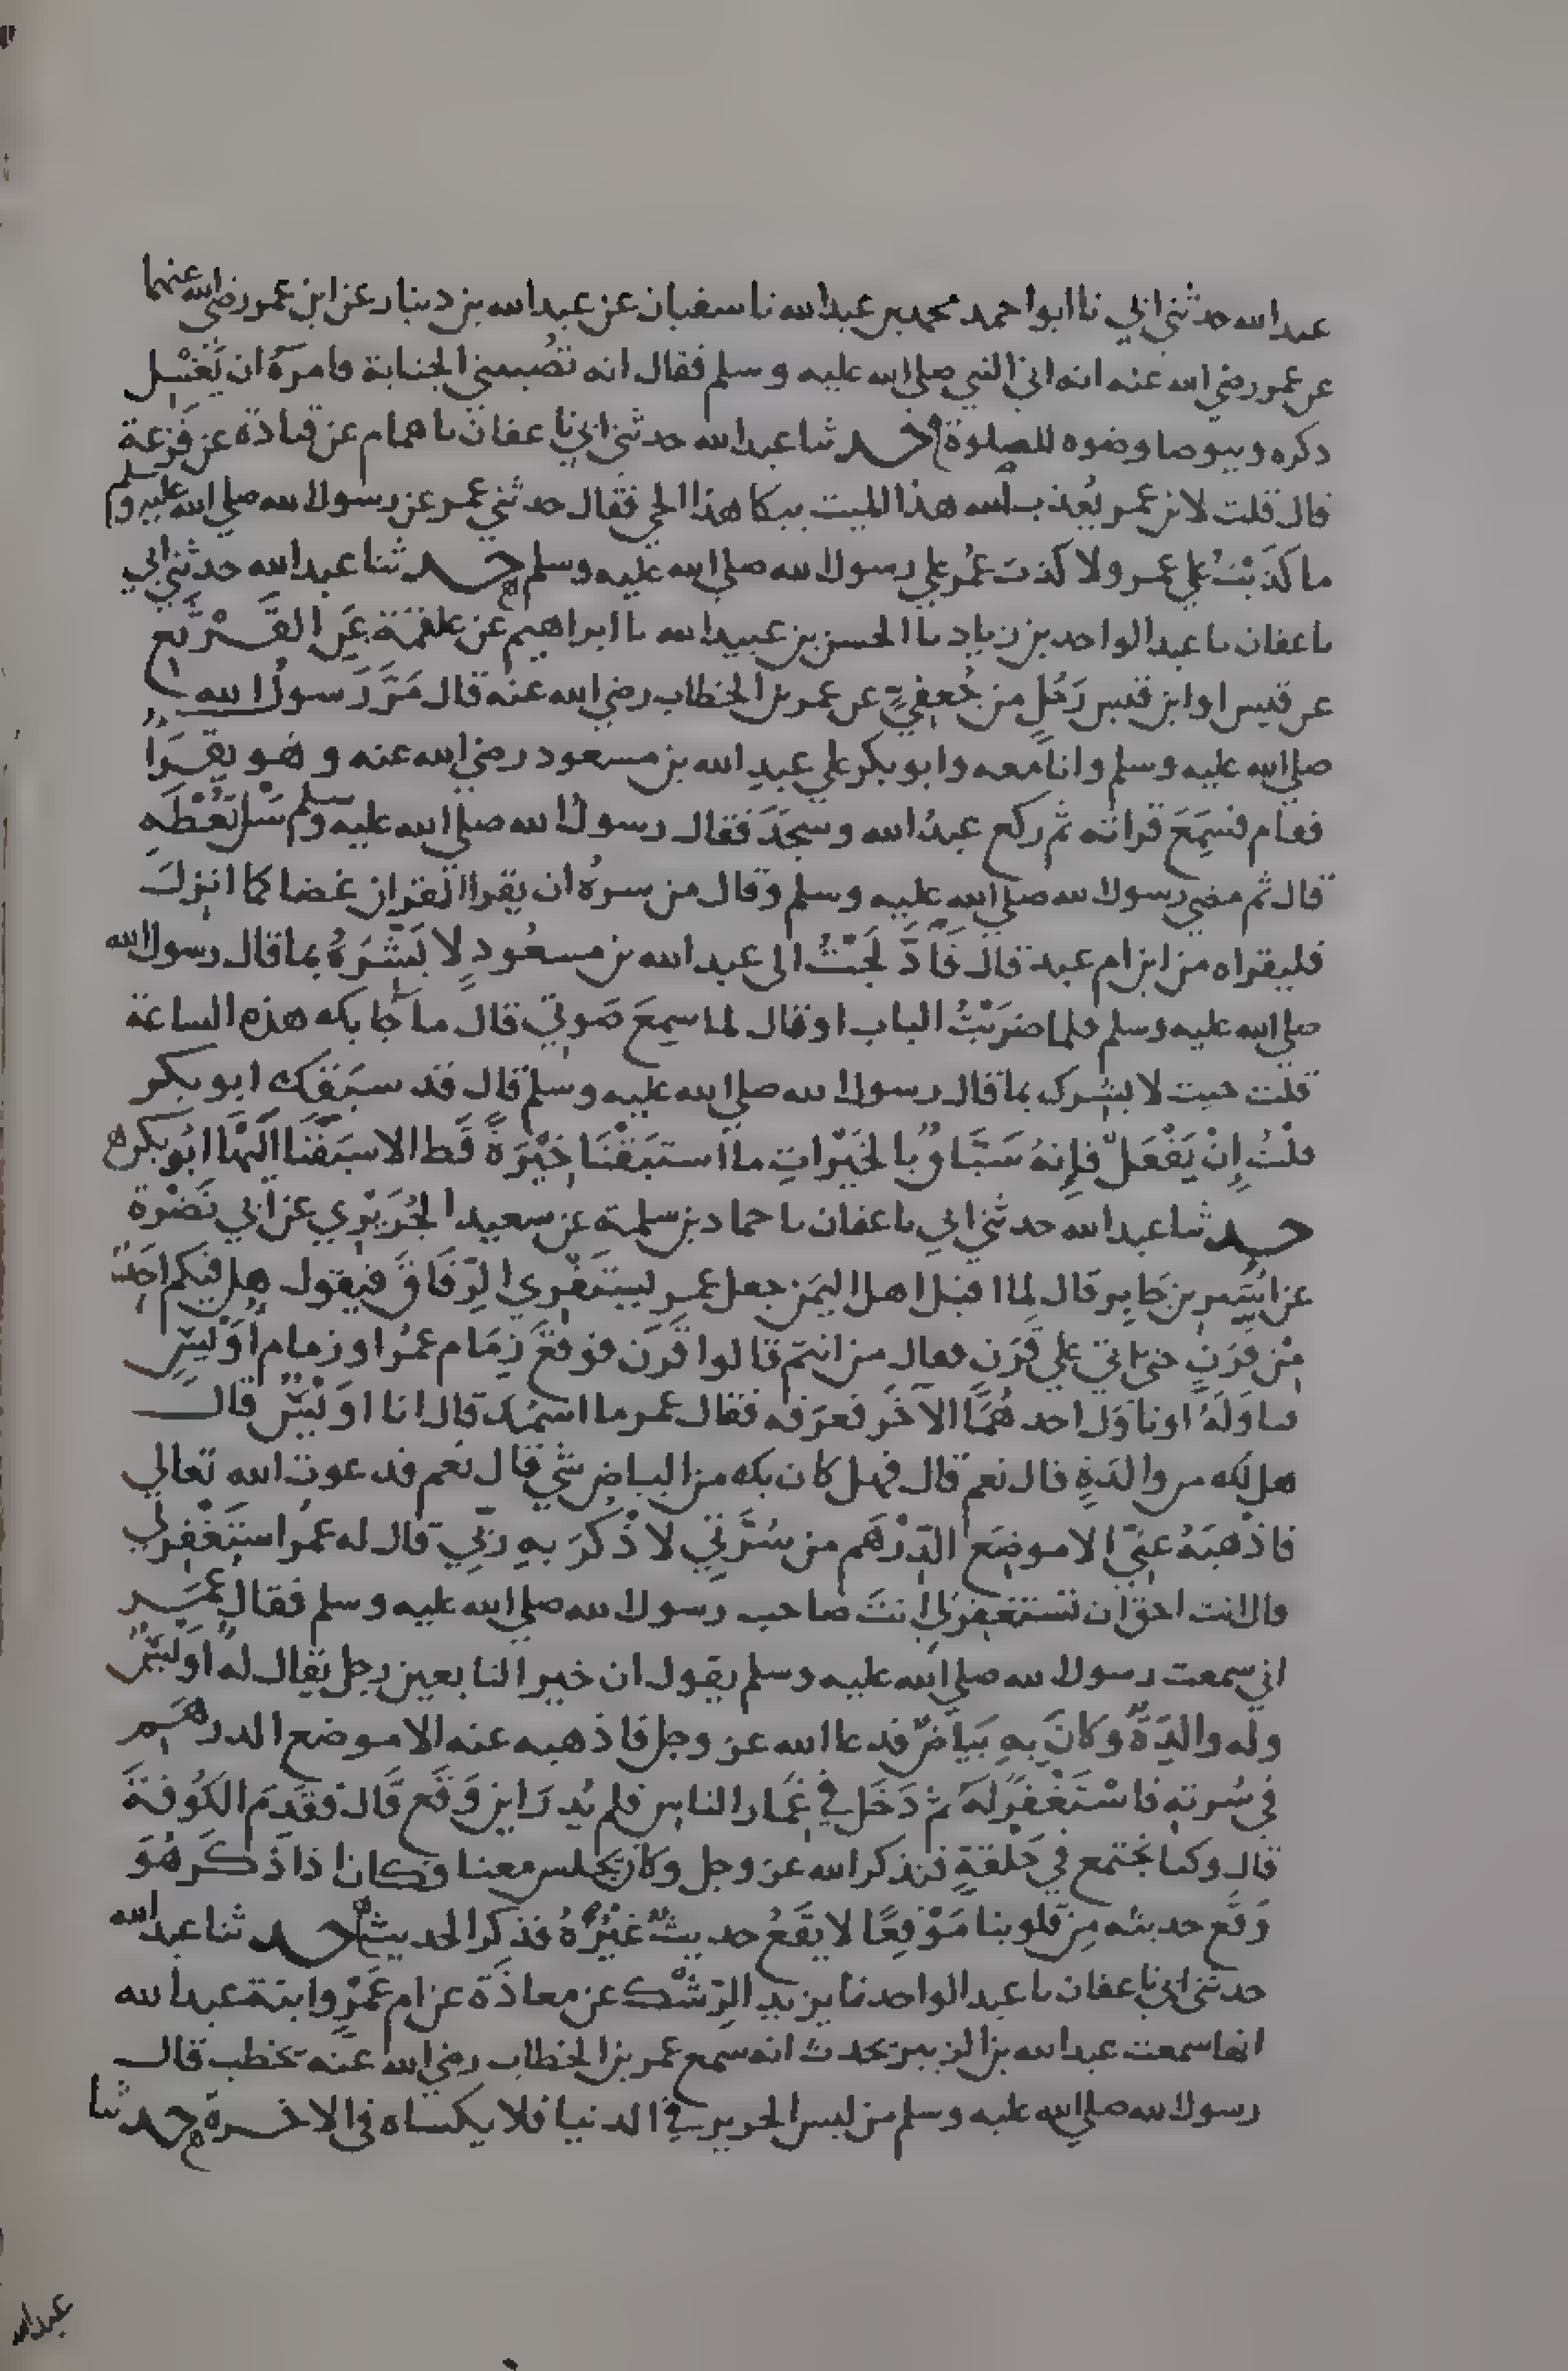 عبد الله حدثني ابي نا ابو احمد محمد بن عبد الله نا سفيان عن عبد الله بن دينار عن ابن عمر رضي الله عنهما
عن عمر رضي الله عنه انه اتى النبي صلى الله عليه وسلم فقال انه تُصيبني الجنابة فامرهُ ان يَغْتسِل
ذكره ويتوضا وضوه للصلوة حدثنا عبد الله حدثني ابي نا عفان نا همام عن قتادة عن قَزعة
قال قلت لابن عمر يُعذب الله هذا الميت ببكا هذا الحي فقال حدثني عمر عن رسول الله صلى الله عليه وسلم
ما كَذَبْتُ علي عمر ولا كذبَ عُمر علي رسول الله صلى الله عليه وسلم حدثنا عبد الله حدثني ابي
نا عفان نا عبد الواحد بن زياد نا الحسن بن عبيد الله نا ابراهيم عن علقمَة عَنِ القَرْثَع
عن قيس او ابن قيس رَجُلٍ من جُعفيٍّ عن عمر بن الخطاب رضي الله عنه قال مَرَّ رَسولُ الله
صلى الله عليه وسلم وانا معه وابو بكر علي عبدِ الله بن مسعود رضي الله عنه وهو يقرَاُ
فقام فسَمِعَ قراته ثم ركع عبدُ الله وسجَدَ فقال رسولُ الله صلى الله عليه وسلم سَلْ تُعْطَهِ
قال ثم مضي رسول الله صلى الله عليه وسلم وقال من سرهُ ان يقرا القران غضا كما انزل
فليقراه من ابن ام عبد قال فَادَّلَجْتُ الى عبد الله بن مسعُودٍ لابَشِّرَهُ بما قال رسول الله
صلى الله عليه وسلم فلما ضرَبْتُ الباب او قال لما سمِعَ صَوتِي قال ما جا بك هذه الساعة
قلت جيت لابشرك بما قال رسول الله صلى الله عليه وسلم قال قد سبَقك ابو بكر
قلْتُ إِنْ يَفْعَلْ فإِنهُ سَبَّاقٌ بالخَيْراتِ ما استبَقْنَا خَيْرَةً قَط الا سبَقَنَا اليَها ابُو بكر
حدثنا عبد الله حدثني ابي نا عفان نا حماد بن سلمة عن سعيد الجُرَيْرِي عن ابي نَضْرة
عن اسَيرِ بن جَابِر قال لما اقبل اهل اليمَن جعل عمر يستَقْرِي الرِّفَاقَ فيقول هل فيكم احَدٌ
مِن قَرَنٍ حتى اتي علي قَرَنٍ فقال من انتم قالوا قَرَن فوقعَ زِمَام عمُر او زمام اوَيْسٍ
فناوَلَهُ او ناوَل احدهُمَا الآخَر فعرَفه فقال عمر ما اسمُك قال انا اوَيْسٌ قال
هل لك من والدَةٍ قال نعم قال فهل كان بك من البياضِ شي قال نعَم فدعوت الله تعالي
فاذْهبَهُ عنِّي الا موضِعَ الدِّرْهَم من سُرَّتِي لاذْكُرَ بهِ ربِّي قال له عمُر استَغْفِر لي
قال انت احق ان تستغفر لي انتَ صَاحب رسول الله صلى الله عليه وسلم فقال عُمَر
اني سمعت رسول الله صلى الله عليه وسلم يقول ان خير التابعين رجل يقال له اوَيْسٌ
وله والِدَةٌ وكانَ بهِ بَيَاضٌ فدعا الله عز وجل فاذهبه عنه الا موضع الدرهَم
في سُرته فاسْتَغْفَرَ لهُ ثم دَخَل في غِمَار الناس فلم يُدرَ اين وَقَع قال فقَدِمَ الكُوفةَ
قال وكنا نجتمع في حَلْقةٍ فنذكر الله عز وجل وكان يجلس معنا فكان اذا ذَكَر هُوَ
وَقَع حديثه مِن قلوبنا مَوْقعًا لا يقَعُ حديثٌ غيْرُهُ فذكر الحديث حدثنا عبد الله
حدثني ابي نا عفان نا عبد الواحد نا يزيد الرِّشْك عن معاذَة عن ام عَمْرٍو ابنة عبد الله
انها سمعت عبد الله بن الزبير يحدث انه سمع عمر بن الخطاب رضي الله عنه يخطب قال
رسول الله صلى الله عليه وسلم من لبس الحرير في الدنيا فلا يكساه في الاخرة حدثنا
عبد الله